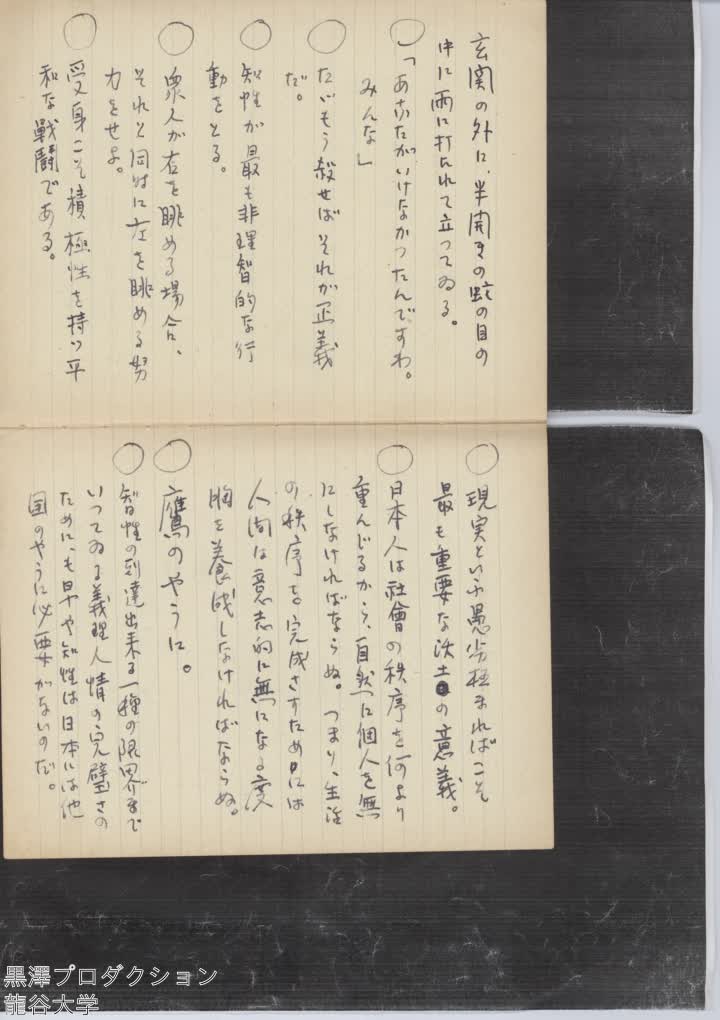 玄関の外に、半開きの蛇の目の
中に雨に打たれて立ってゐる。
○「あなたがいけなかつたんですわ。
みんな」
○たいもう殺せばそれが正義
だ。
○知性が最も非理智的な行
動をとる。
○衆人が右を眺める場合、
それと同時に左を眺める努
力をせよ。
○受身こそ積極性を持つ平
和な戦闘である。
○現実といふ愚劣極まればこそ
最も重要な決土の意義。
○日本人は社會の秩序を何より
重んじるから、自然に個人を無
にしなければならぬ。つまり、生活
の秩序を。完成さすためには
人間は意志的に無になる度
胸を養成しなければならぬ。
○鷹のやうに。
○智性の到達出来る一種の限界まで
いつてゐる義理人情の完璧さの
ために、も早や知性は日本には他
国のやうに必要がないのだ。
黒澤プロダクション
龍谷大学